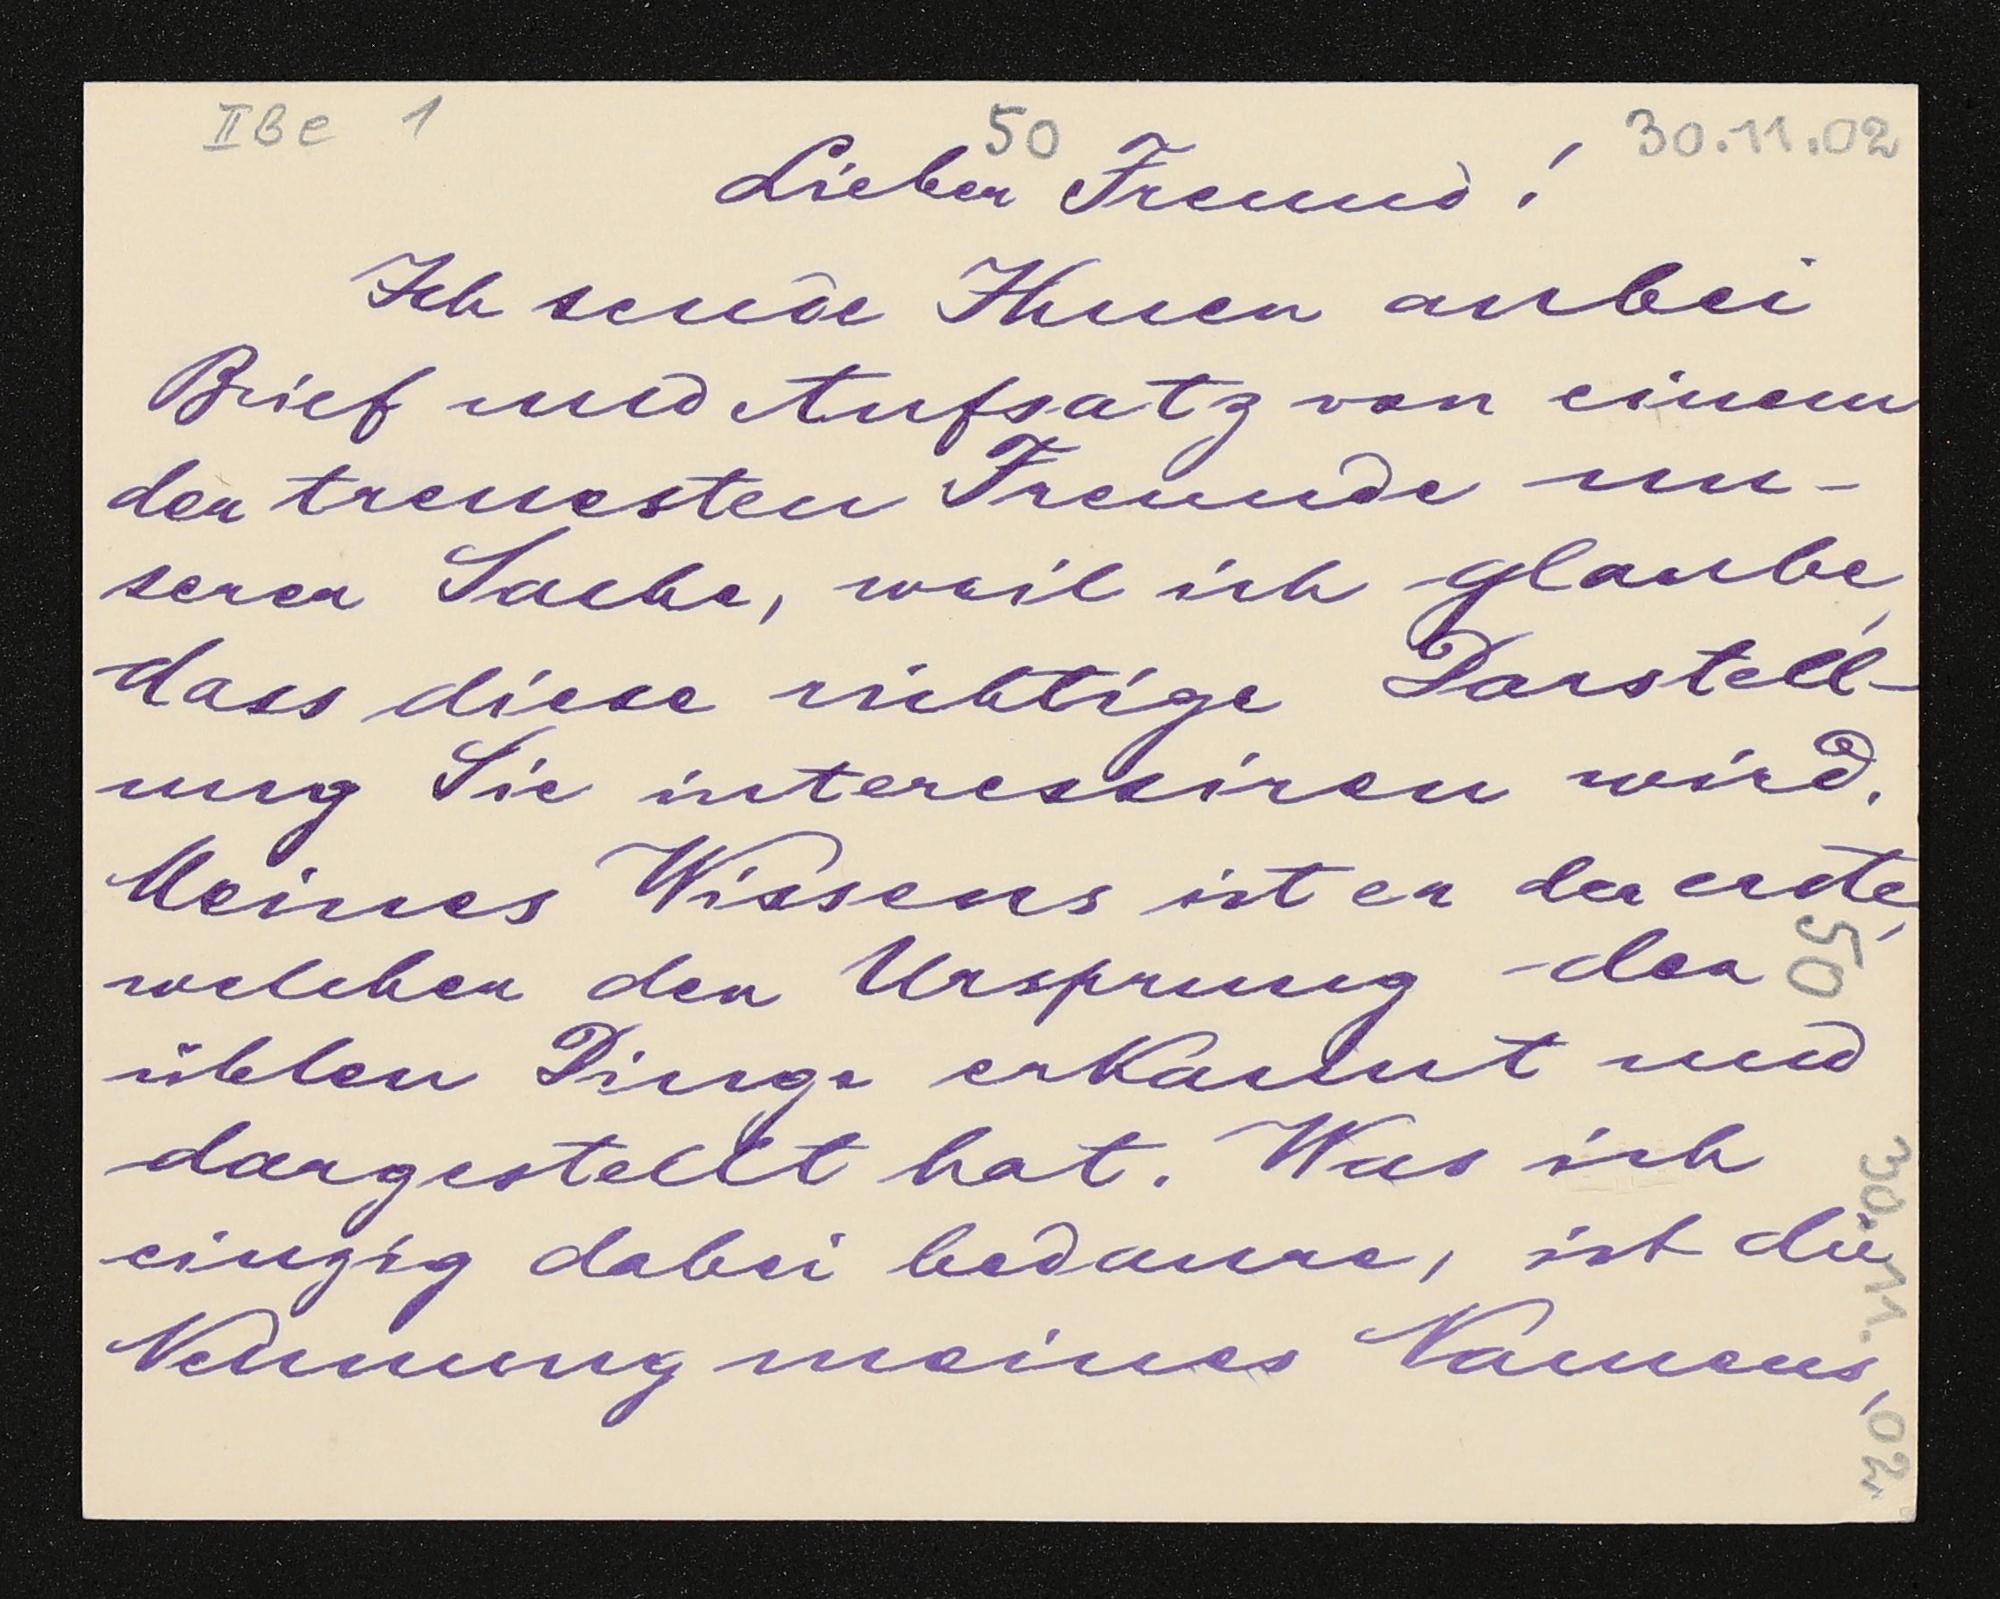 IIBe 1
50
30.11.02
Lieber Freund!
Ich sende Ihnen anbei
Brief und Aufsatz von einem
der treuesten Freunde un-
serer Sache, weil ich glaube,
dass diese richtige Darstell-
ung Sie interessiren wird.
Meines Wissens ist er der erste,
welcher den Ursprung der
üblen Dinge erkannt und
dargestellt hat. Was ich
einzig dabei bedaure, ist die
Nennung meines Namens,
50
30.11.02